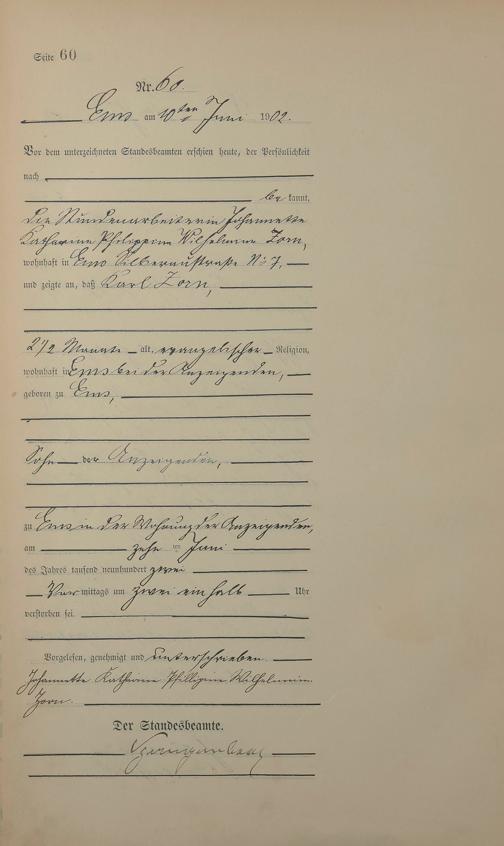 Seite 60
Nr. 60.
Ems am 10ten Juni 1902.
Vor dem unterzeichneten Standesbeamten erschien heute, der Persönlichkeit
nach
be kannt,
die Stundenarbeiterin Johannette
Katharine Philippine Wilhelmine Zorn,
wohnhaft in Ems Silberaustraße No 7,
und zeigte an, daß Karl Zorn,
2 1/2 Monate alt, evangelischer Religion,
wohnhaft in Ems bei der Anzeigenden,
geboren zu Ems,
Sohn der Anzeigenden,
zu Ems in der Wohnung der Anzeigenden,
am zehn ten Juni
des Jahres tausend neunhundert zwei
Vor mittags um zwei einhalb Uhr
verstorben sei.
Vorgelesen, genehmigt und unterschrieben
Johannette Katharine Phillipine Wilhelmine
Zorn.
Der Standesbeamte.